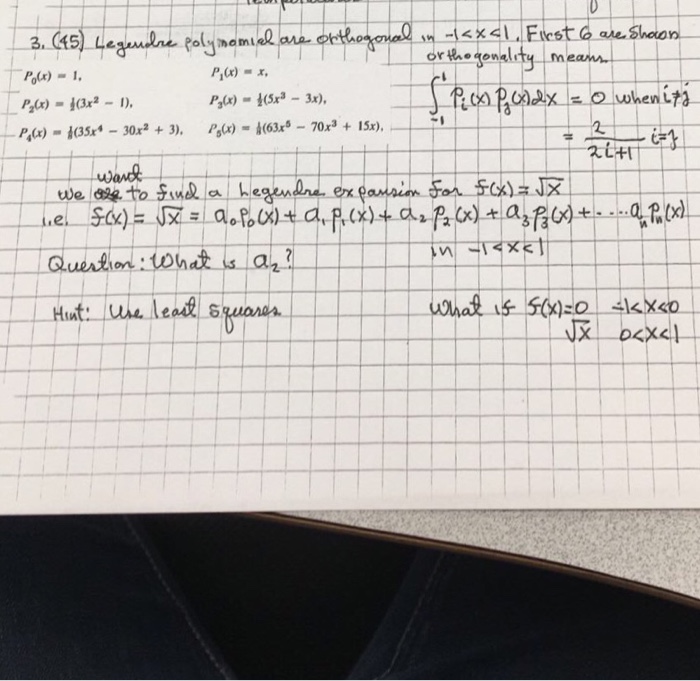 3. (45) Legendre polynomial are orthogonal in -1<x<1. First 6 are shown
orthogonality means
P₀(x) = 1, P₁(x) = x,
P₂(x) = ½(3x² − 1), P₃(x) = ½(5x³ − 3x),
P₄(x) = ⅛(35x⁴ − 30x² + 3), P₅(x) = ⅛(63x⁵ − 70x³ + 15x),
∫₋₁¹ Pᵢ(x) Pⱼ(x) dx = 0 when i≠j
= 2/(2i+1) i=j
want
we to find a Legendre expansion for f(x) = √x
i.e. f(x) = √x = a₀P₀(x) + a₁P₁(x) + a₂P₂(x) + a₃P₃(x) + ....aₙPₙ(x)
in -1<x<1
Question: What is a₂?
Hint: Use least squares
What if f(x)=0 -1<x<0
√x 0<x<1